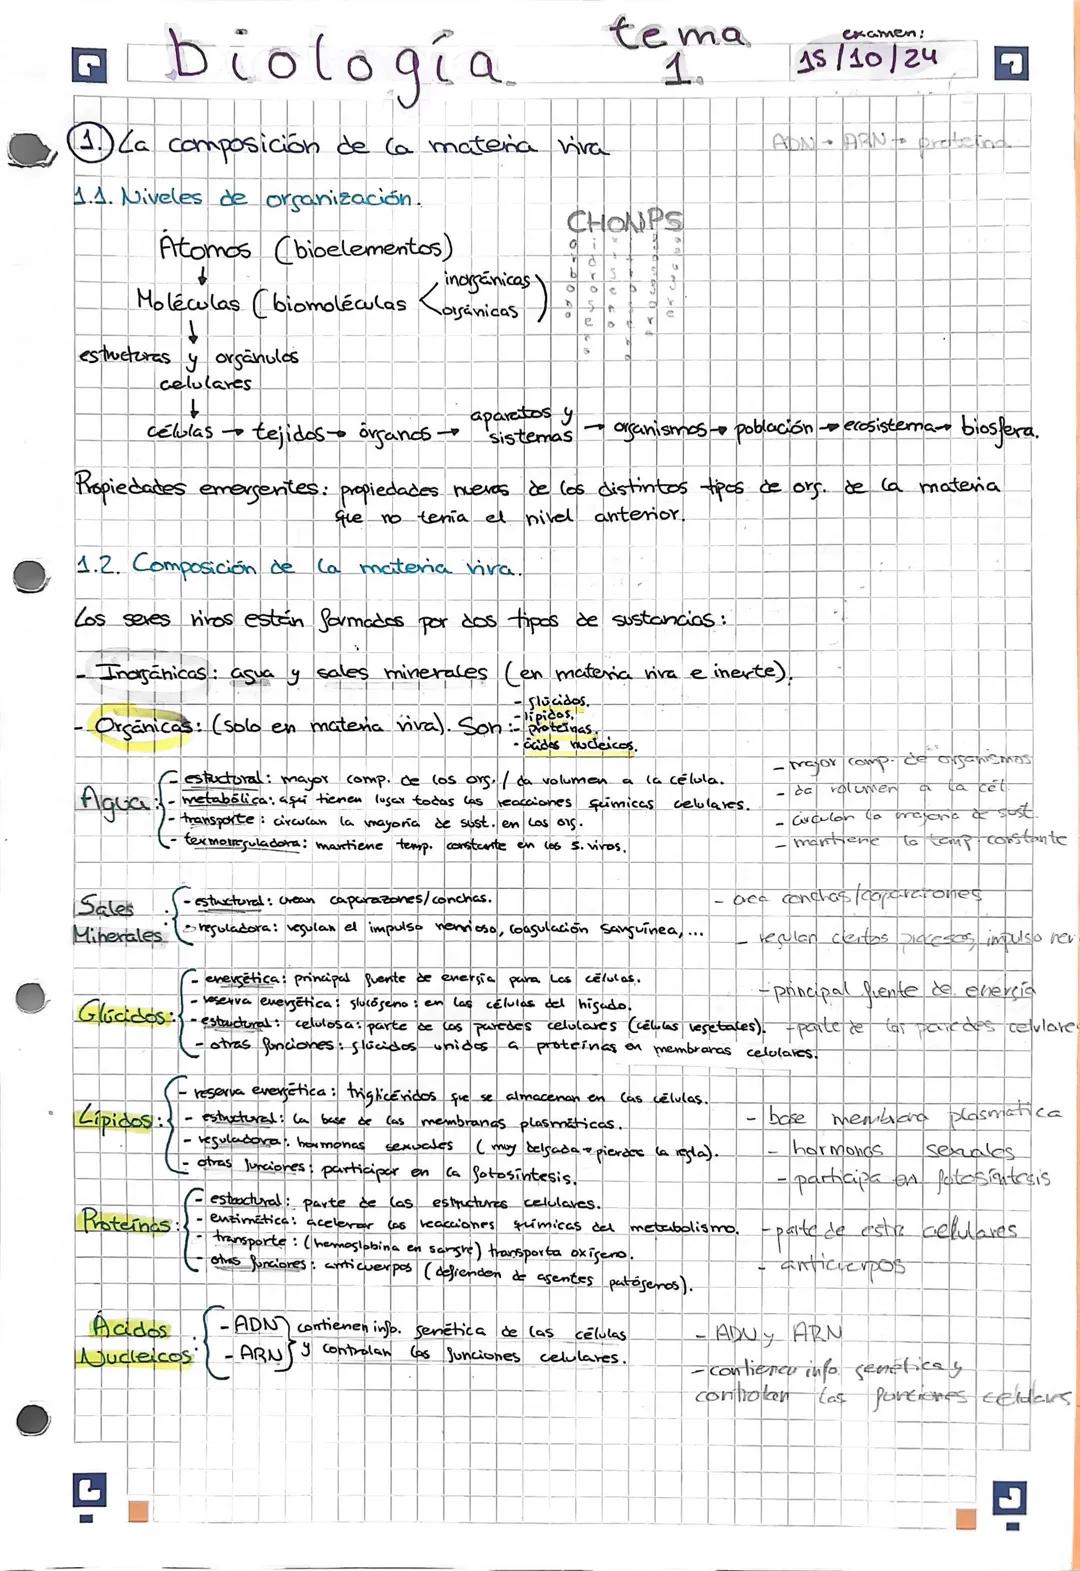 biología tema 1.
examen: 15/10/24
1. La composición de la materia viva
ADN → ARN → proteína
1.1. Niveles de organización.
CHONPS
carbono
hidrógeno
oxígeno
Átomos (bioelementos)
↓
Moléculas (biomoléculas < inorgánicas
orgánicas )
↓
estructuras y orgánulos
celulares
↓
células → tejidos → órganos → aparatos y sistemas → organismos → población → ecosistema → biosfera.
Propiedades emergentes: propiedades nuevas de los distintos tipos de org. de la materia
que no tenía el nivel anterior.
1.2. Composición de la materia viva.
Los seres vivos están formados por dos tipos de sustancias:
- Inorgánicas: agua y sales minerales (en materia viva e inerte).
- Orgánicas: (solo en materia viva). Son:
- glúcidos.
- lípidos.
- proteínas.
- ácidos nucleicos.
Agua:
- estructural: mayor comp. de los org. / da volumen a la célula.
- metabólica: aquí tienen lugar todas las reacciones químicas celulares.
- transporte: circulan la mayoría de sust. en los org.
- termorreguladora: mantiene temp. constante en los s. vivos.
- mayor comp. de organismos
- da volumen a la cél.
- circulan la mayoría de sust.
- mantiene la temp. constante
Sales Minerales:
- estructural: crean caparazones/conchas.
- reguladora: regulan el impulso nervioso, coagulación sanguínea, ...
- conchas/caparazones
- regulan ciertos procesos, impulso ner
Glúcidos:
- energética: principal fuente de energía para las células.
- reserva energética: glucógeno: en las células del hígado.
- estructural: celulosa: parte de las paredes celulares (células vegetales).
- otras funciones: glúcidos unidos a proteínas en membranas celulares.
- principal fuente de energía
- parte de las paredes celulare
Lípidos:
- reserva energética: triglicéridos que se almacenan en las células.
- estructural: la base de las membranas plasmáticas.
- reguladora: hormonas sexuales (muy delgada → pierdes la regla).
- otras funciones: participar en la fotosíntesis.
- base membrana plasmática
- hormonas sexuales
- participa en fotosíntesis
Proteínas:
- estructural: parte de las estructuras celulares.
- enzimática: acelerar las reacciones químicas del metabolismo.
- transporte: (hemoglobina en sangre) transporta oxígeno.
- otras funciones: anticuerpos (defienden de agentes patógenos).
- parte de estr. celulares
- anticuerpos
Ácidos Nucleicos:
- ADN
- ARN
contienen info. genética de las células
y controlan las funciones celulares.
- ADN y ARN
- contienen info. genética y
controlan las funciones celulares